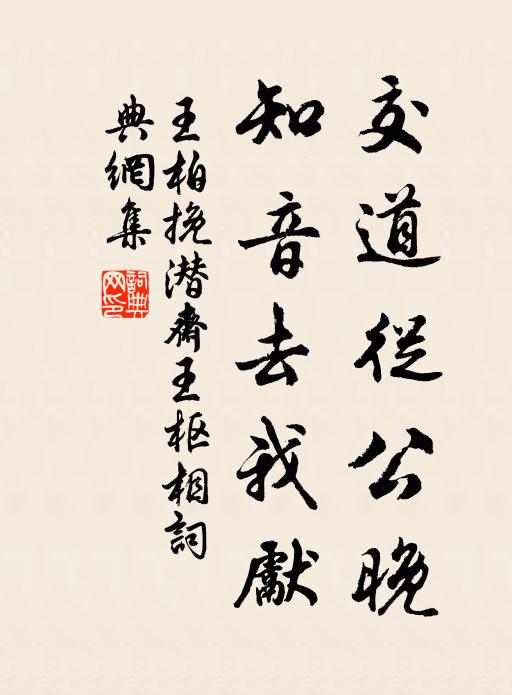 交道從公晚
知音去我獻
王柏挽潜齋王枢相詞
典網集
詞典网印